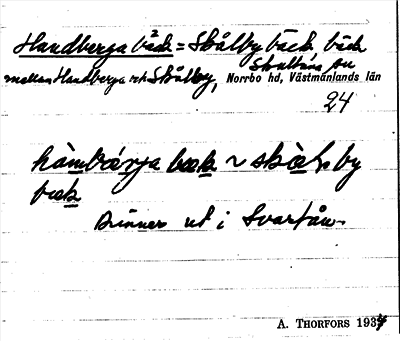 Handberga bäck = Skålby bäck, bäck
mellan Handberga och Skålby, Skultuna sn
Norrbo hd, Västmanlands län
24
hàmbárja bæk ~ skà by
bæk
Rinner ut i Svartån.
A. THORFORS 1934